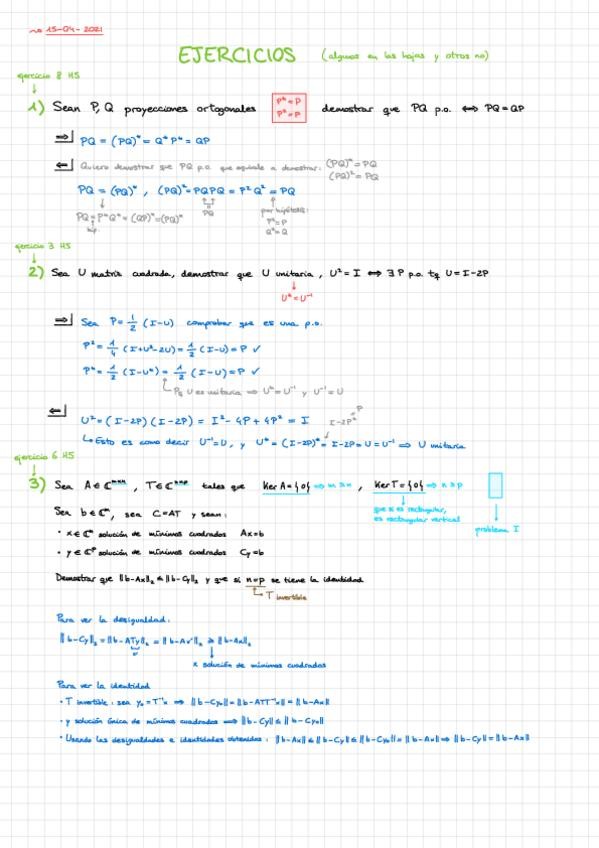 → 15-04-2021
EJERCICIOS (algunos en las hojas y otros no)
ejercicio 8 H5
1) Sean P, Q proyecciones ortogonales P* = P P² = P demostrar que PQ p.o. ⟺ PQ = QP
⟹ PQ = (PQ)* = Q* P* = QP
⟸ Quiero demostrar que PQ p.o. que equivale a demostrar: (PQ)* = PQ
(PQ)² = PQ
PQ = (PQ)*, (PQ)² = PQPQ = P² Q² = PQ
PQ = P* Q* = (QP)* = (PQ)* PQ por hipótesis:
hip. P² = P
Q² = Q
ejercicio 3 H5
2) Sea U matriz cuadrada, demostrar que U unitaria, U² = I ⟺ ∃ P p.o. tq U = I - 2P
U* = U⁻¹
⟹ Sea P = 1/2 (I - U) comprobar que es una p.o.
P² = 1/4 (I + U² - 2U) = 1/2 (I - U) = P ✓
P* = 1/2 (I - U*) = 1/2 (I - U) = P ✓
Pq U es unitaria ⟹ U* = U⁻¹ y U⁻¹ = U
⟸ U² = (I - 2P)(I - 2P) = I² - 4P + 4P² = I I - 2P* = P
↳ Esto es como decir U⁻¹ = U, y U* = (I - 2P)* = I - 2P = U = U⁻¹ ⟹ U unitaria
ejercicio 6 H5
3) Sea A ∈ ℂᵐˣⁿ, T ∈ ℂⁿˣᵖ tales que Ker A = {0} ⟹ m ≥ n, Ker T = {0} ⟹ n ≥ p
que si es rectangular,
es rectangular vertical
problema I
Sea b ∈ ℂᵐ, sea C = AT y sean:
• x ∈ ℂⁿ solución de mínimos cuadrados Ax = b
• y ∈ ℂᵖ solución de mínimos cuadrados Cy = b
Demostrar que ‖b - Ax‖₂ ≤ ‖b - Cy‖₂ y que si n = p se tiene la identidad
T invertible
Para ver la desigualdad:
‖b - Cy‖₂ = ‖b - ATy‖₂ = ‖b - Av‖₂ ≥ ‖b - Ax‖₂
v
x solución de mínimos cuadrados
Para ver la identidad
• T invertible: sea y₀ = T⁻¹x ⟹ ‖b - Cy₀‖ = ‖b - ATT⁻¹x‖ = ‖b - Ax‖
• y solución única de mínimos cuadrados ⟹ ‖b - Cy‖ ≤ ‖b - Cy₀‖
• Usando las desigualdades e identidades obtenidas: ‖b - Ax‖ ≤ ‖b - Cy‖ ≤ ‖b - Cy₀‖ = ‖b - Ax‖ ⟹ ‖b - Cy‖ = ‖b - Ax‖